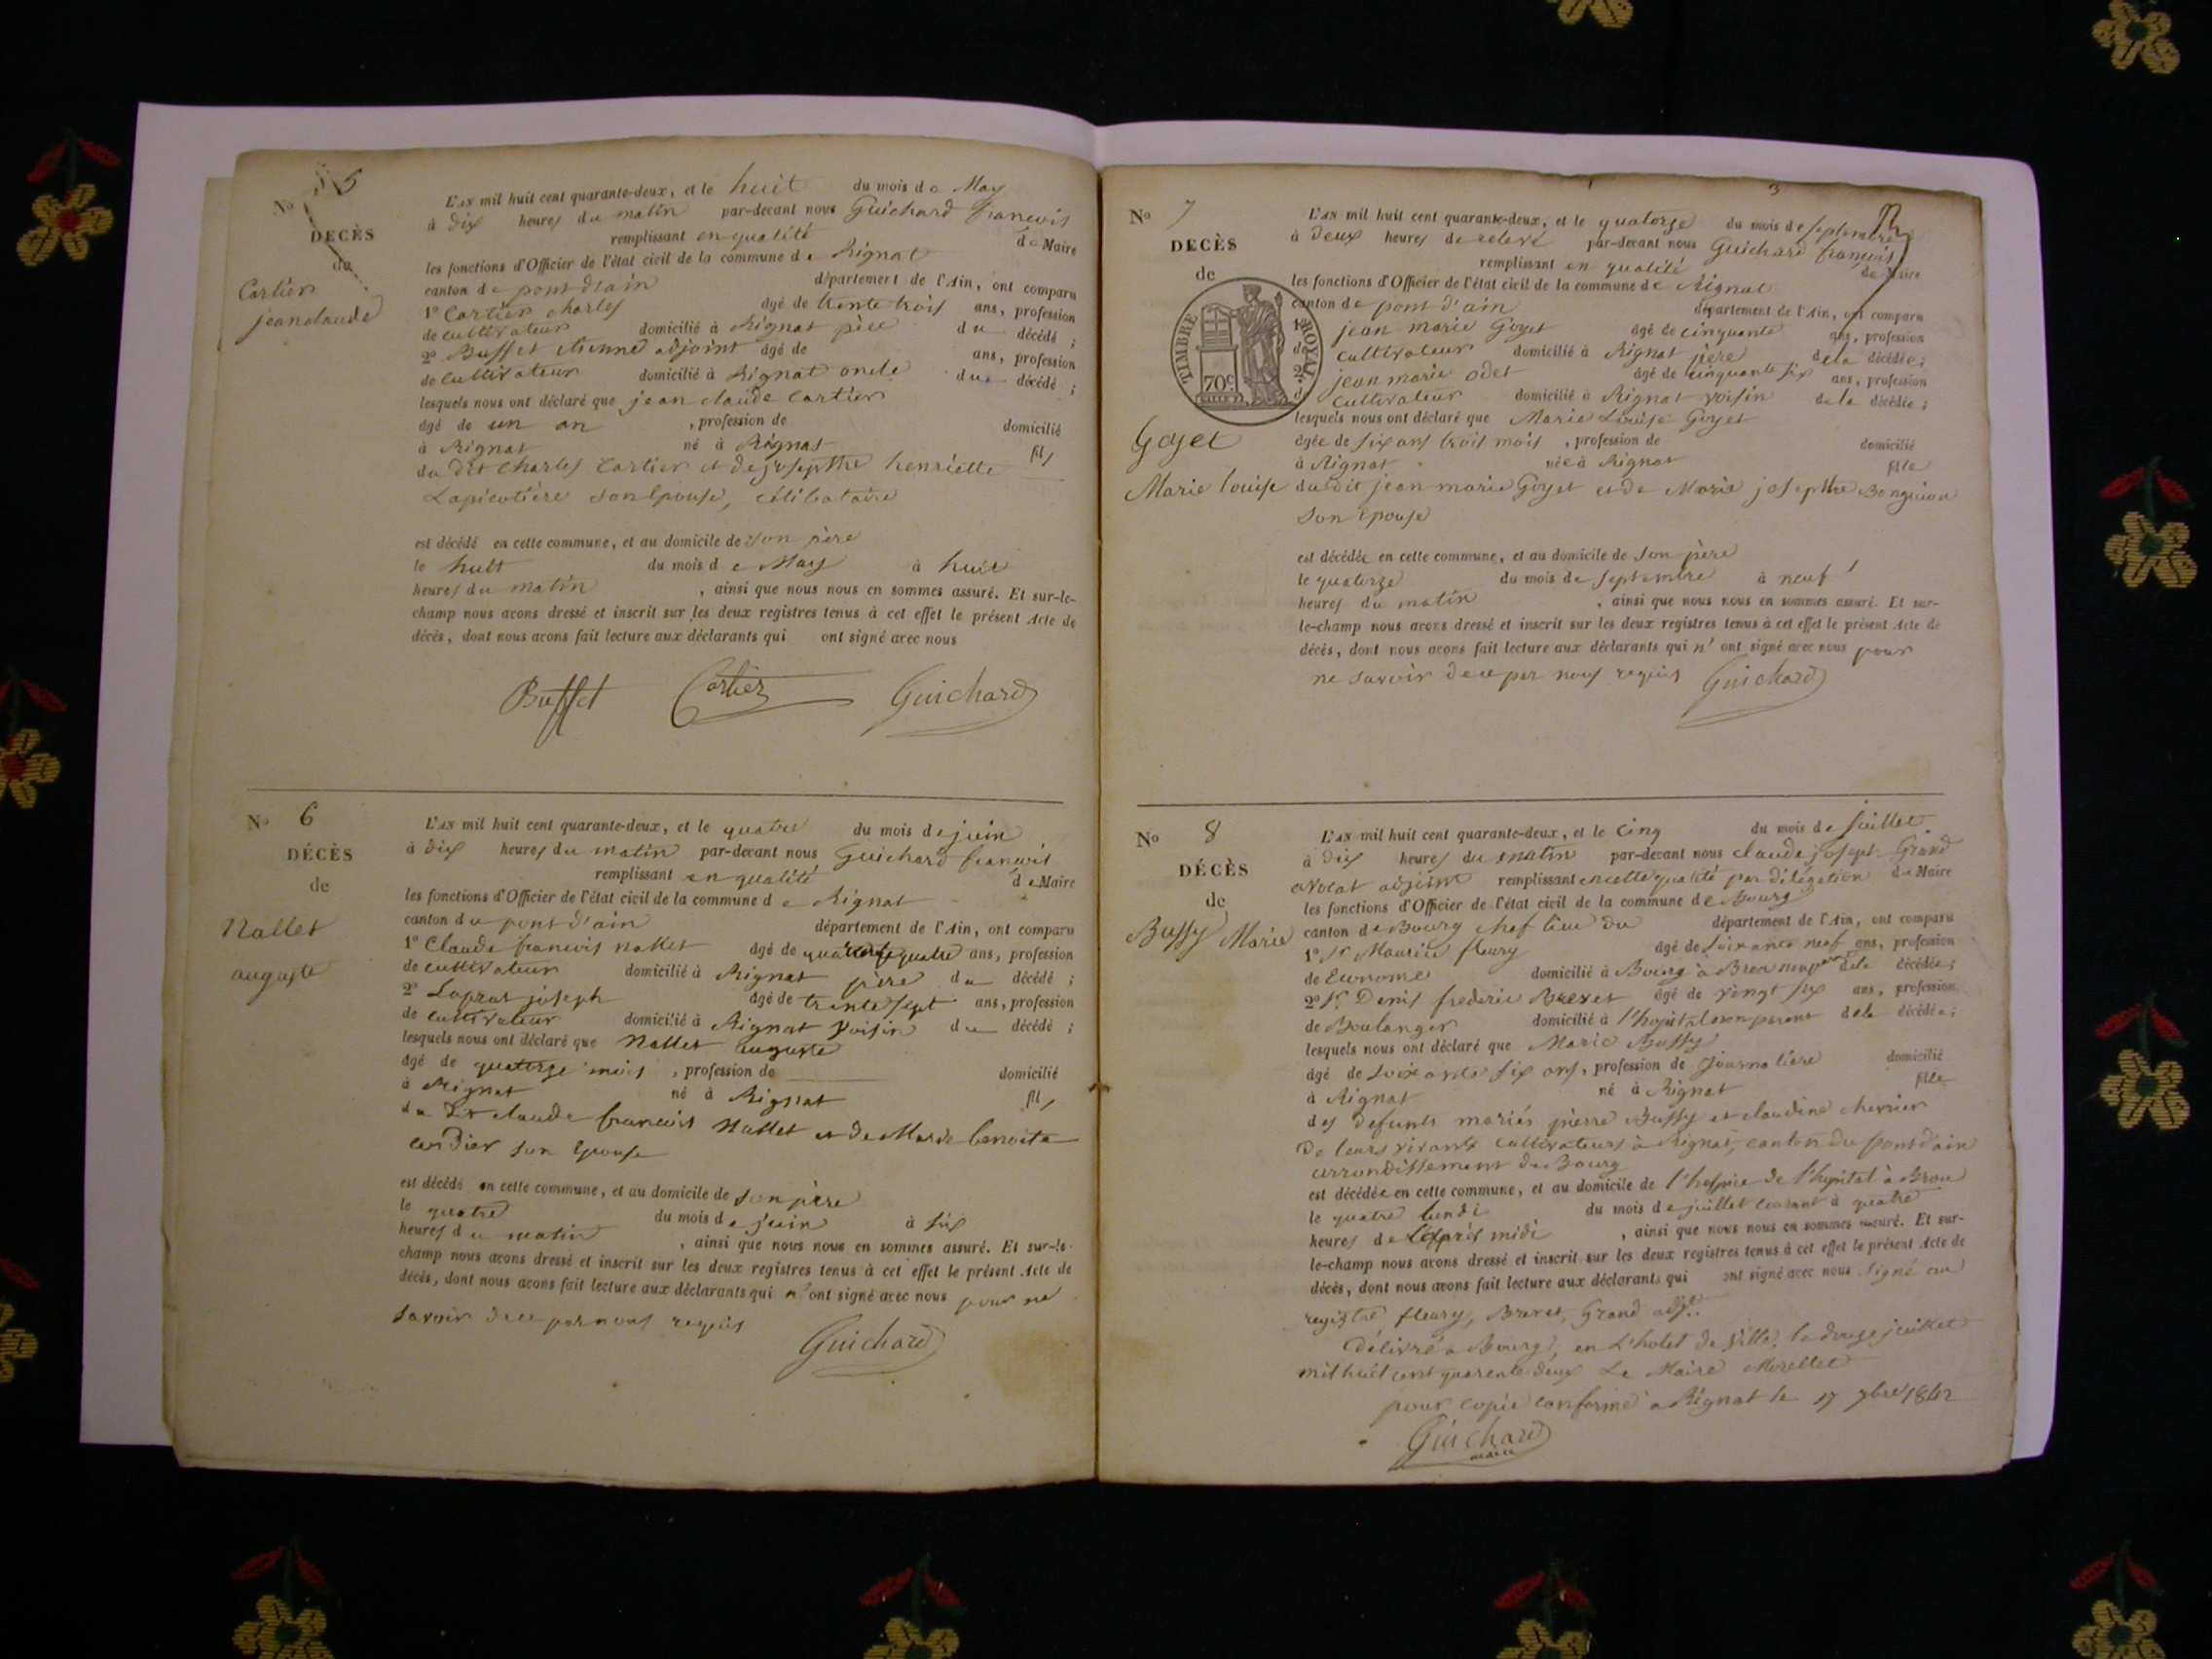 No 5
DECÈS
de
Cartier
jean claude
L'an mil huit cent quarante-deux, et le huit du mois de May
à dix heures du matin par-devant nous Guichard françois
remplissant en qualité de Maire
les fonctions d'Officier de l'état civil de la commune de Rignat
canton de pont d'ain département de l'Ain, ont comparu
1° Cartier charles âgé de trente trois ans, profession
de cultivateur domicilié à Rignat père du décédé ;
2° Buffet etienne adjoint âgé de ans, profession
de cultivateur domicilié à Rignat oncle du décédé ;
lesquels nous ont déclaré que jean claude Cartier
âgé de un an , profession de domicilié
à Rignat né à Rignat fils
du dit Charles Cartier et de josepthe henriette
Lapicotière son épouse, célibataire
est décédé en cette commune, et au domicile de son père
le huit du mois de May à huit
heures du matin , ainsi que nous nous en sommes assuré. Et sur-le-
champ nous avons dressé et inscrit sur les deux registres tenus à cet effet le présent Acte de
décès, dont nous avons fait lecture aux déclarants qui ont signé avec nous
Buffet Cartier Guichard
No 6
DÉCÈS
de
Nallet
auguste
L'an mil huit cent quarante-deux, et le quatre du mois de juin
à dix heures du matin par-devant nous Guichard françois
remplissant en qualité de Maire
les fonctions d'Officier de l'état civil de la commune de Rignat
canton du pont d'ain département de l'Ain, ont comparu
1° Claude francois nallet âgé de quatre ans, profession
de cultivateur domicilié à Rignat père du décédé ;
2° Laprat joseph âgé de trente sept ans, profession
de cultivateur domicilié à Rignat voisin du décédé ;
lesquels nous ont déclaré que Nallet auguste
âgé de quatorze mois , profession de domicilié
à Rignat né à Rignat fils
du dit claude francois Nallet et de Marie benoite
cordier son épouse
est décédé en cette commune, et au domicile de son père
le quatre du mois de juin à six
heures du matin , ainsi que nous nous en sommes assuré. Et sur-le-
champ nous avons dressé et inscrit sur les deux registres tenus à cet effet le présent Acte de
décès, dont nous avons fait lecture aux déclarants qui n'ont signé avec nous pour ne
savoir de ce par nous requis
Guichard
3
No 7
DECÈS
de
TIMBRE ROYAL
70c
Goyet
Marie louise
L'an mil huit cent quarante-deux, et le quatorze du mois de septembre
à deux heures de relevé par-devant nous Guichard françois
remplissant en qualité de Maire
les fonctions d'Officier de l'état civil de la commune de Rignat
canton de pont d'ain département de l'Ain, ont comparu
1° jean marie Goyet âgé de cinquante ans, profession
de cultivateur domicilié à Rignat père de la décédée ;
2° jean marie odet âgé de cinquante six ans, profession
de cultivateur domicilié à Rignat voisin de la décédée ;
lesquels nous ont déclaré que Marie Louise Goyet
âgée de six ans trois mois , profession de domicilié
à Rignat née à Rignat fille
du dit jean marie Goyet et de Marie josepthe
son épouse
est décédée en cette commune, et au domicile de son père
le quatorze du mois de septembre à neuf
heures du matin , ainsi que nous nous en sommes assuré. Et sur-
le-champ nous avons dressé et inscrit sur les deux registres tenus à cet effet le présent Acte de
décès, dont nous avons fait lecture aux déclarants qui n'ont signé avec nous pour
ne savoir de ce par nous requis Guichard
No 8
DÉCÈS
de
Bussy Marie
L'an mil huit cent quarante-deux, et le cinq du mois de juillet
à dix heures du matin par-devant nous claude josept Grand
avocat adjoint remplissant en cette qualité par délégation de Maire
les fonctions d'Officier de l'état civil de la commune de Bourg
canton de Bourg chef lieu du département de l'Ain, ont comparu
1° Sr Maurice fleury âgé de soixante neuf ans, profession
de Econome domicilié à Bourg à Brou non parent de la décédée ;
2° Sr Denis frederic Brevet âgé de vingt six ans, profession
de Boulanger domicilié à l'hopital non parent de la décédée ;
lesquels nous ont déclaré que Marie Bussy
âgé de soixante six ans, profession de journalière domicilié
à Rignat né à Rignat fille
des defunts mariés pierre Bussy et claudine chevrier
de leurs vivants cultivateurs à Rignat, canton du pont d'ain
arrondissement de Bourg
est décédée en cette commune, et au domicile de l'hospice de l'hopital à Brou
le quatre lundi du mois de juillet courant à quatre
heures de l'après midi , ainsi que nous nous en sommes assuré. Et sur-
le-champ nous avons dressé et inscrit sur les deux registres tenus à cet effet le présent Acte de
décès, dont nous avons fait lecture aux déclarants qui ont signé avec nous Signé au
registre fleury, Brevet, Grand adjt.
Délivré à Bourg, en L'hotel de ville, le douze juillet
mil huit cent quarente deux Le Maire Morellet
pour copie conforme à Rignat le 17 9bre 1842
Guichard
maire